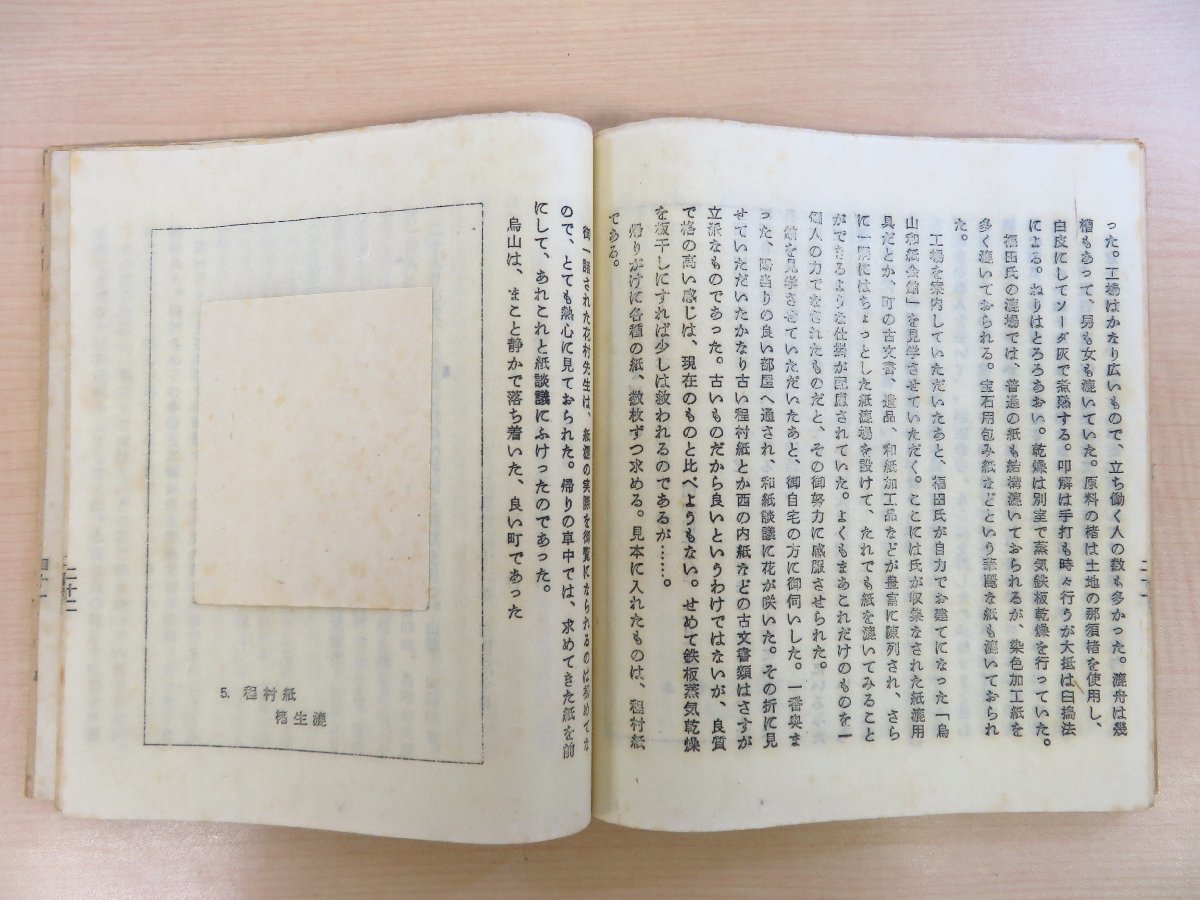 った。工場はかなり広いもので、立ち働く人の数も多かった。漉舟は幾
槽もあって、男も女も漉いていた。原料の楮は土地の那須楮を使用し、
白皮にしてソーダ灰で煮熟する。叩解は手打も時々行うが大抵は臼搗法
による。ねりはとろろあおい。乾燥は別室で蒸気鉄板乾燥を行っていた。
福田氏の漉場では、普通の紙も結構漉いておられるが、染色加工紙を
多く漉いておられる。宝石用包み紙などという華麗な紙も漉いておられ
た。
工場を案内していただいたあと、福田氏が自力でお建てになった「烏
山和紙会館」を見学させていただく。ここには氏が収集なされた紙漉用
具だとか、町の古文書、遺品、和紙加工品などが豊富に陳列され、さら
に一隅にはちょっとした紙漉場を設けて、たれでも紙を漉いてみること
ができるような仕掛が配慮されていた。よくもまあこれだけのものを一
個人の力でなされたものだと、その御努力に感服させられた。
会館を見学させていただいたあと、御自宅の方に御伺いした。一番奥ま
った、陽当りの良い部屋へ通され、和紙談議に花が咲いた。その折に見
せていただいたかなり古い程村紙とか西の内紙などの古文書類はさすが
立派なものであった。古いものだから良いというわけではないが、良質
で格の高い感じは、現在のものと比べようもない。せめて鉄板蒸気乾燥
を板干しにすれば少しは救われるのであるが……。
帰りがけに各種の紙、数枚ずつ求める。見本に入れたものは、程村紙
である。
二十
御一諸された花村先生は、紙漉の実際を御覧になられるのは初めてな
ので、とても熱心に見ておられた。帰りの車中では、求めてきた紙を前
にして、あれこれと紙談議にふけったのであった。
烏山は、まこと静かで落ち着いた、良い町であった
5. 程村紙
楮生漉
二十一